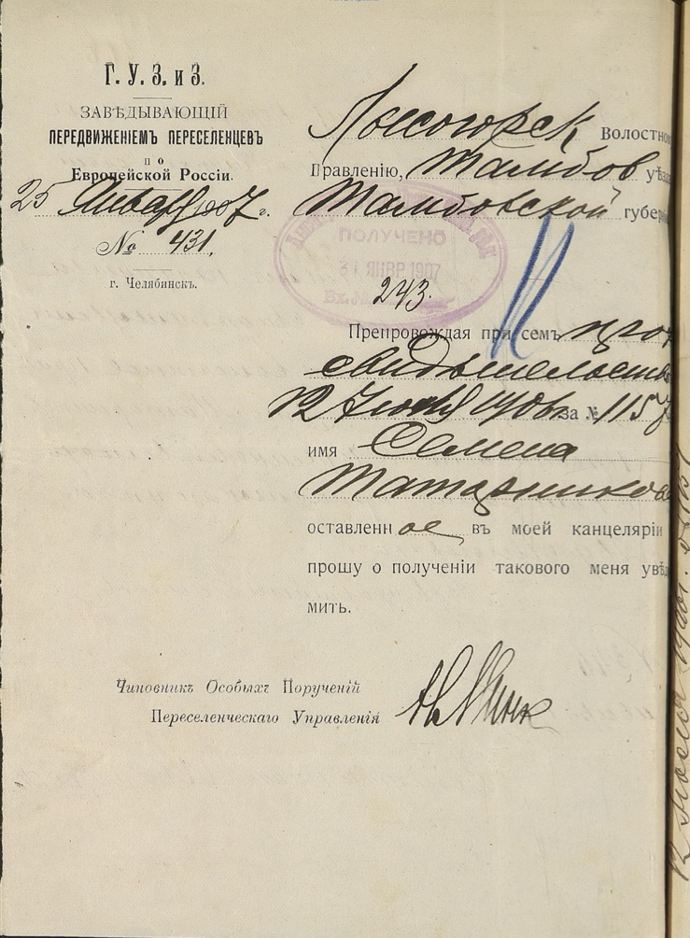 Г. У. З. и З.
ЗАВѢДЫВАЮЩІЙ
ПЕРЕДВИЖЕНІЕМЪ ПЕРЕСЕЛЕНЦЕВЪ
по
Европейской Россіи.
25 Января 1907 г.
№ 431.
г. Челябинскъ.
Лысогорск Волостном
Правленію, Тамбов уѣзда
Тамбовской губерні
ПОЛУЧЕНО
31 ЯНВР 1907
Вх. №
243.
Препровождая при семъ
свидѣтельство
12 Іюня 1906 г. за № 1157
имя Семена
Татарникова
оставленное въ моей канцеляріи
прошу о полученіи такового меня увѣд
мить.
Чиновникъ Особыхъ Порученій
Переселенческаго Управленія